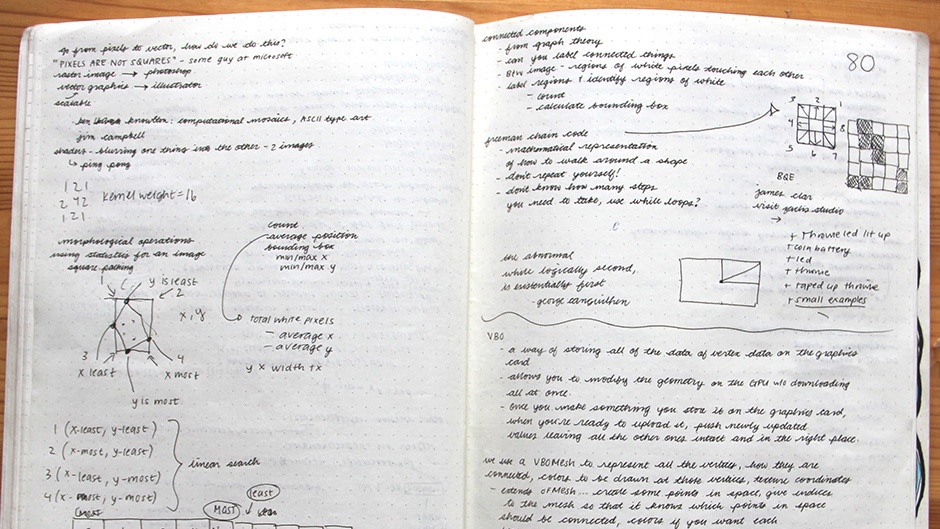 go from pixels to vector, how do we do this?
"PIXELS ARE NOT SQUARES" - some guy at microsoft
raster image → photoshop
vector graphics → illustrator
scalable
knowlton: computational mosaics, ASCII type art
jim campbell
shaders - blurring one thing into the other - 2 images
↳ ping pong
1 2 1
2 4 2
1 2 1
kernel weight = 16
morphological operations
using statistics for an image
square packing
count
average position
bounding box
min/max x
min/max y
1
y is least
2
x, y
3
x least
4
x most
y is most
total white pixels
- average x
- average y
y × width + x
1 (x-least, y-least)
2 (x-most, y-least)
3 (x-least, y-most)
4 (x-most, y-most)
linear search
least
most
connected components
- from graph theory
- can you label connected things
- B&W image - regions of white pixels touching each other
- label regions + identify regions of white
- count
- calculate bounding box
freeman chain code
- mathematical representation
of how to walk around a shape
- don't repeat yourself!
- don't know how many steps
you need to take, use while loops?
80
3 2 1
4 8
5 6 7
BQE
james clar
visit zach's studio
→
+ throwie led lit up
+ coin battery
+ led
+ throwie
+ taped up throwie
+ small examples
the abnormal
while logically second,
is existentially first
- george canguilhem
VBO
- a way of storing all of the data of vertex data on the graphics
card
- allows you to modify the geometry on the GPU w/o downloading
all at once.
- once you make something you store it on the graphics card,
when you're ready to upload it, push newly updated
values leaving all the other ones intact and in the right place.
we use a VBOMesh to represent all the vertices, how they are
connected, colors to be drawn at those vertices, texture coordinates
- extends OFMesh... create some points in space, give indices
to the mesh so that it knows which points in space
should be connected, colors if you want each